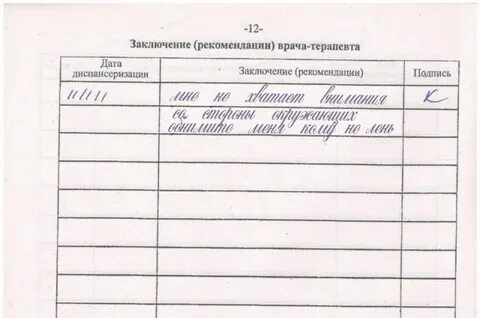 -12-
Заключение (рекомендации) врача-терапевта
Дата диспансеризации
Заключение (рекомендации)
Подпись
мне не хватает внимания
со стороны окружающих
обнимите меня кому не лень
К